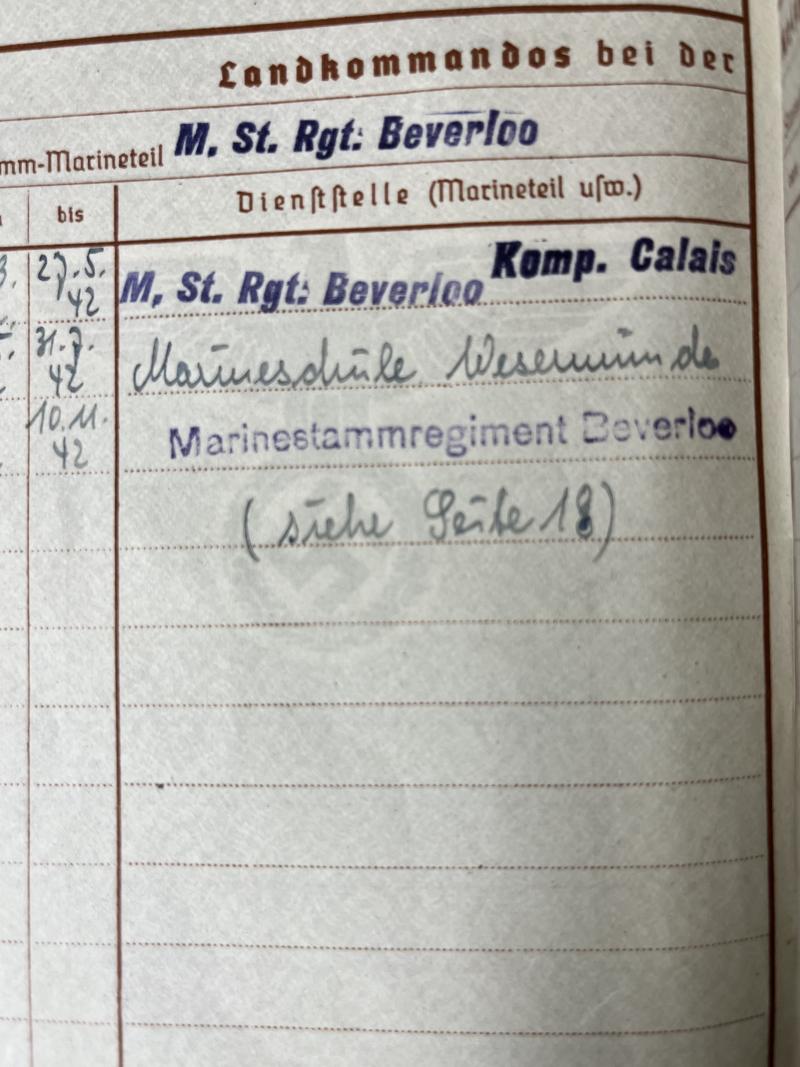 Landkommandos bei der
mm-Marineteil M. St. Rgt: Beverloo
bis Dienststelle (Marineteil usw.)
27.5. 42 M, St. Rgt: Beverloo Komp. Calais
31.7. 42 Marineschule Wesermünde
10.11. 42 Marinestammregiment Beverloo
(siehe Seite 18)